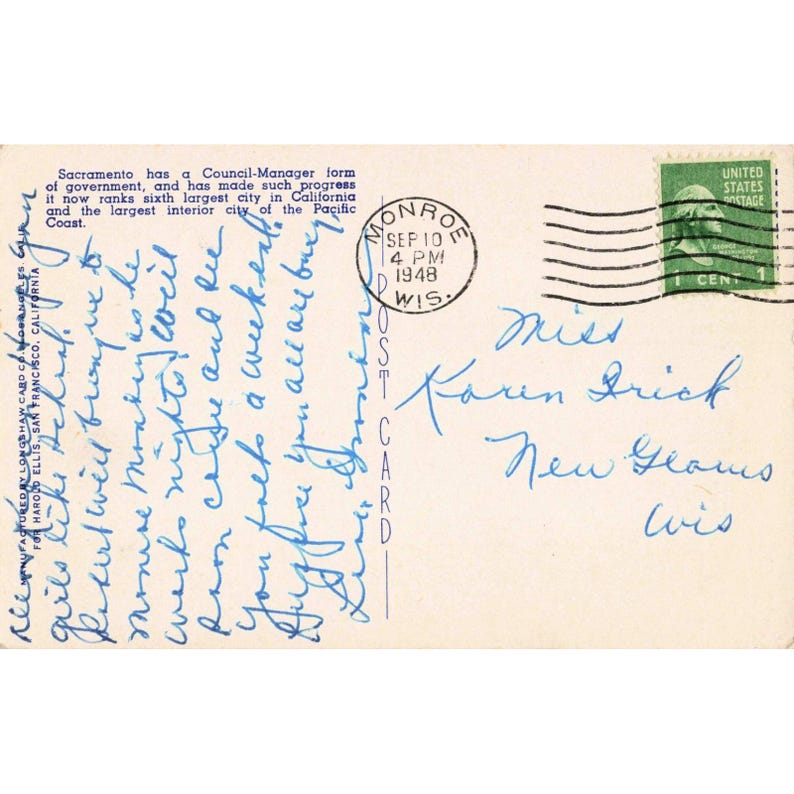 Sacramento has a Council-Manager form
of government, and has made such progress
it now ranks sixth largest city in California
and the largest interior city of the Pacific
Coast.
MANUFACTURED BY LONGSHAW CARD CO. LOS ANGELES, CALIF.
FOR HAROLD ELLIS, SAN FRANCISCO, CALIFORNIA
POST CARD
MONROE
SEP 10
4 PM
1948
WIS.
UNITED
STATES
POSTAGE
GEORGE
WASHINGTON
1 CENT 1
Miss
Karen Frick
New Glarus
Wis
girls like school.
Robert will bring me to
Monroe Monday as he
works nights. Will
soon come and see
you folks a week end.
Suppose you all are busy
Love